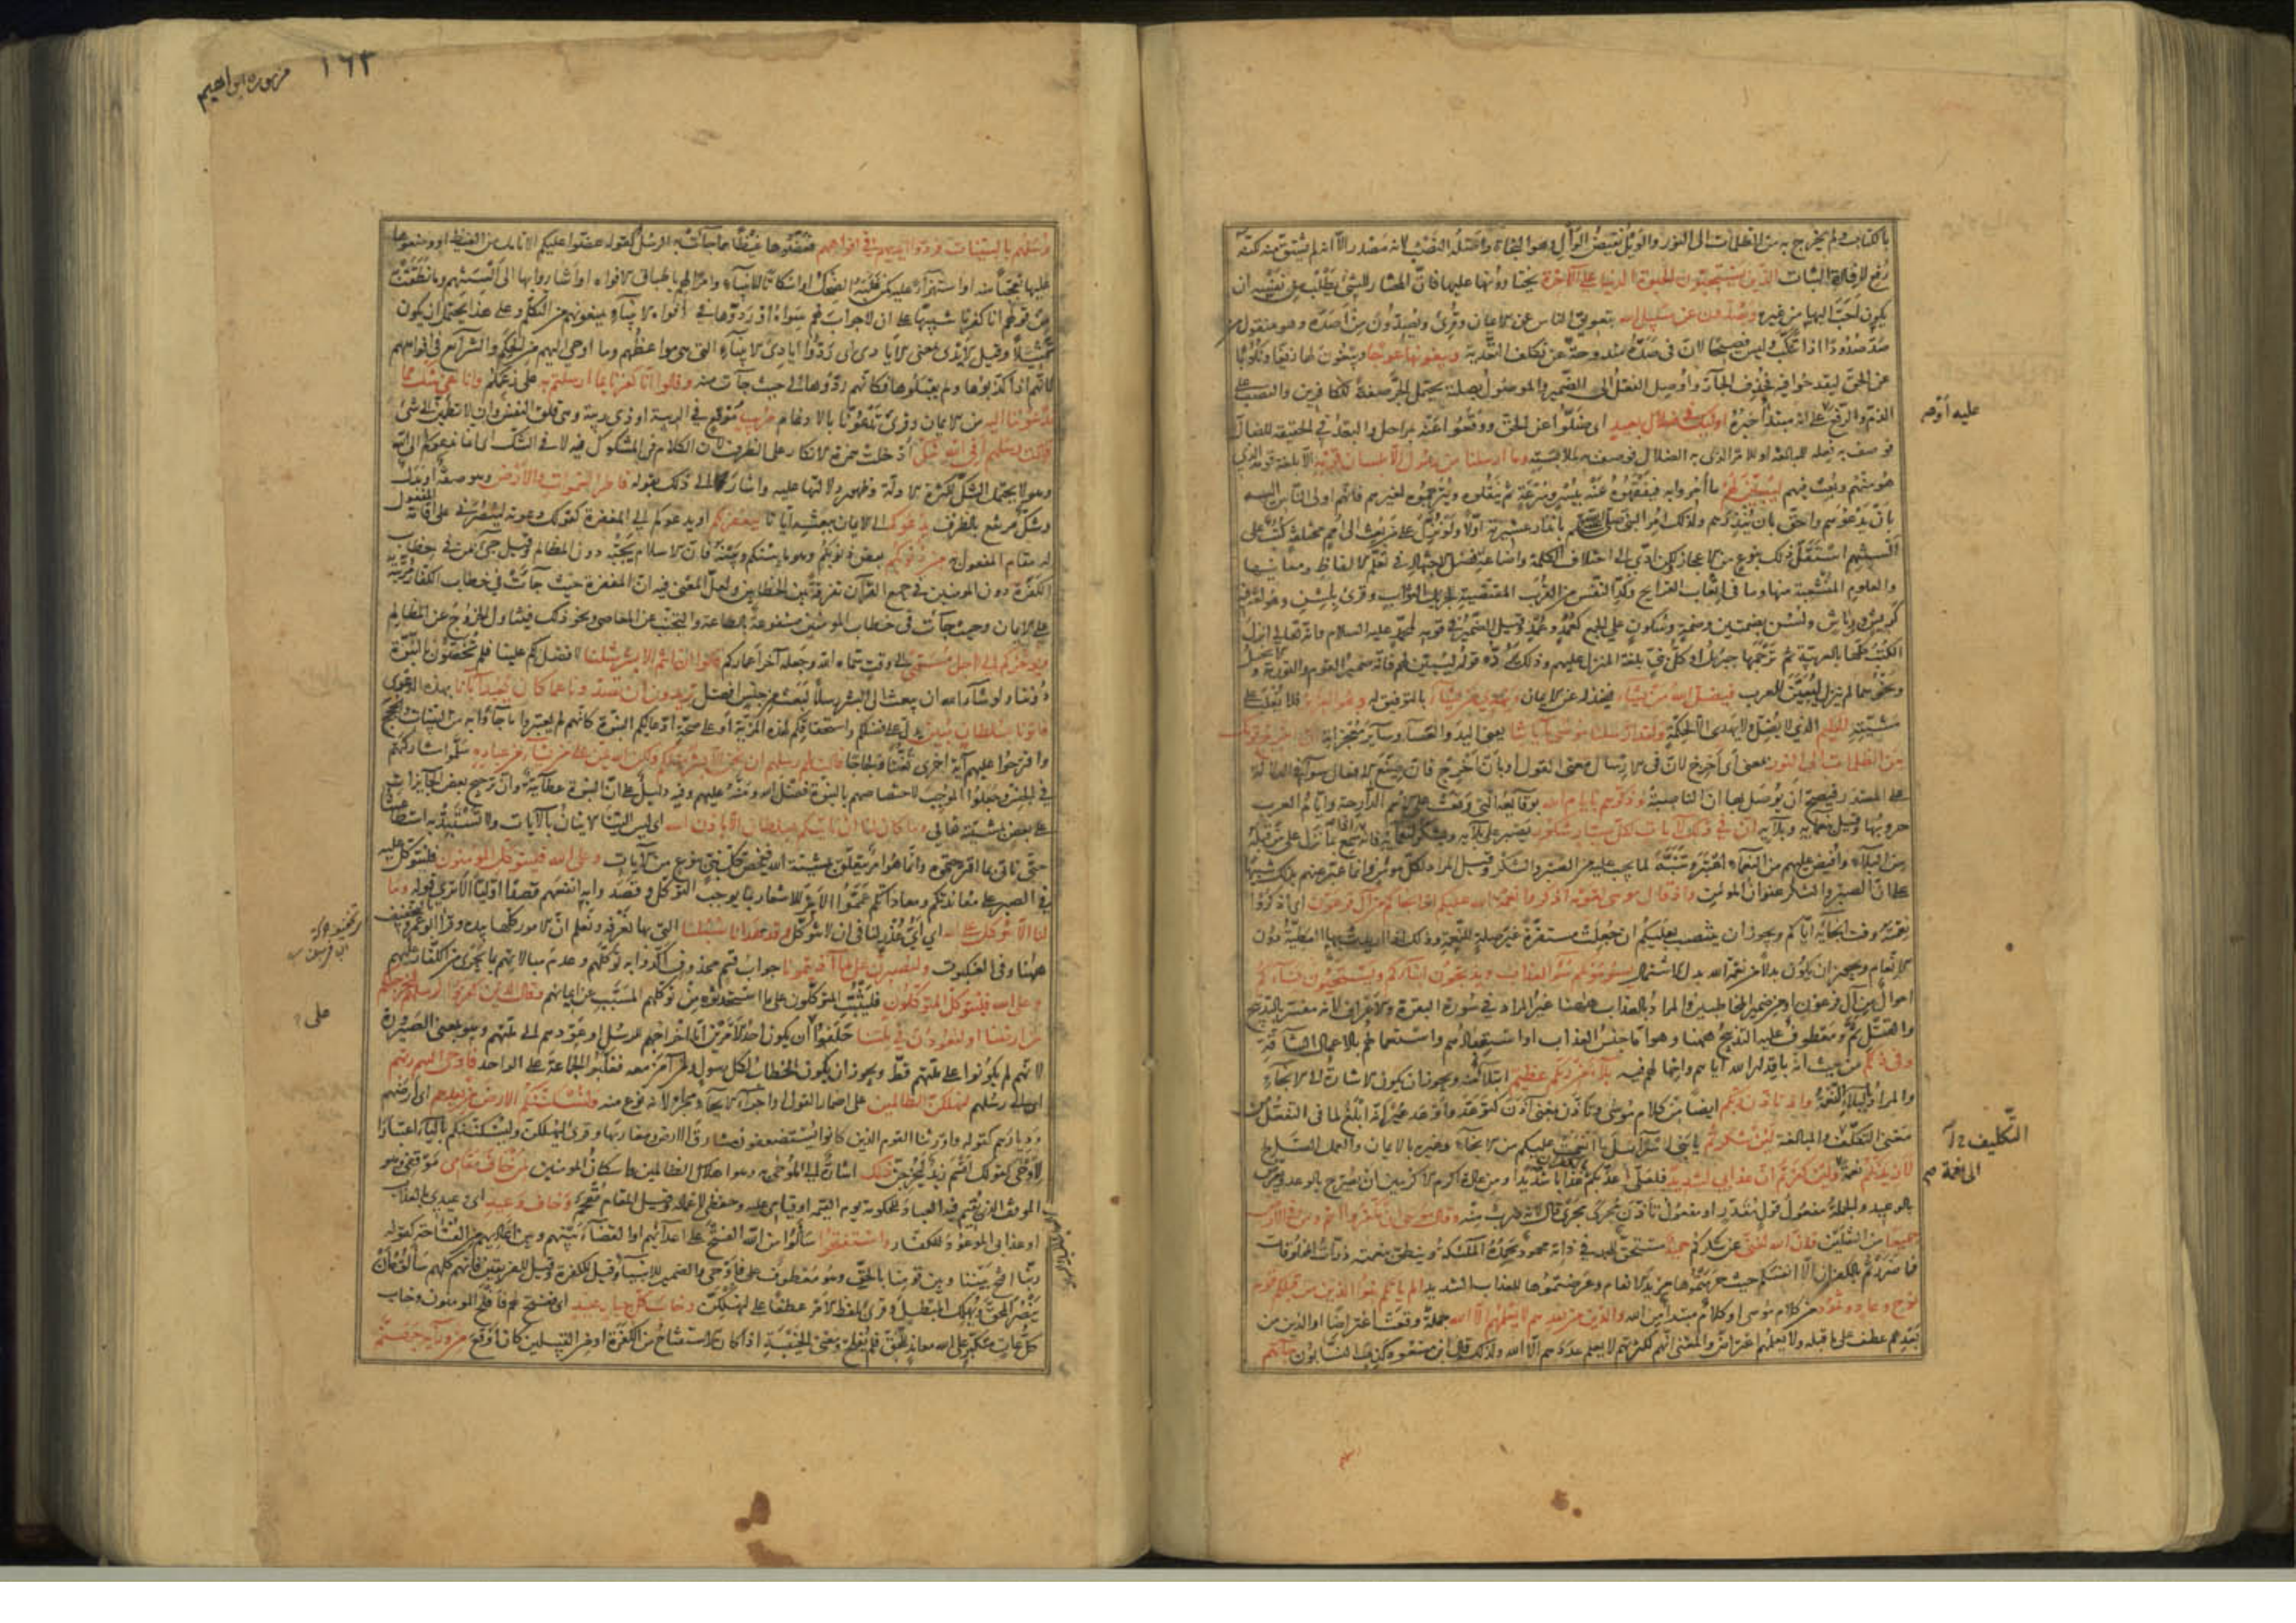 بالكتاب ولم يخرج به من الظلمات الى النور والويل نقيض الوأل وهو النجاة واصله النصب لانه مصدر الا انه لم يشتق منه لكنه
رفع لافادة الثبات الذين يستحبون الحيوة الدنيا على الآخرة يختارونها عليها فان المختار للشئ يطلب من نفسه ان
يكون احب اليها من غيره ويصدون عن سبيل الله بتعويق الناس عن الايمان وقرئ ويصدون من اصده وهو منقول من
صد صدودا اذا تنكب وليس فصيحا لان في صده مندوحة عن تكلف التعدية ويبغونها عوجا ويبغون لها زيغا ونكوبا
عن الحق ليقدحوا فيه فحذف الجار واوصل الفعل الى الضمير والموصول بصلته يحتمل الجر صفة للكافرين والنصب على
الذم والرفع على انه مبتدأ خبره اولئك في ضلال بعيد اى ضلوا عن الحق ووقعوا عنه بمراحل والبعد في الحقيقة للضال
فوصف به فعله للمبالغة او للامر الذي به الضلال فوصف به لملابسته وما ارسلنا من رسول الا بلسان قومه الا بلغة قومه الذي
هو منهم وبعث فيهم ليبين لهم ما امروا به فيفقهوه عنه بيسر وسرعة ثم ينقلوه ويترجموه لغيرهم فانهم اولى الناس اليه
بان يدعوهم واحق بان ينذرهم ولذلك امر النبي بانذار عشيرته اولا ولو نزل على من بعث الى امم مختلفة كتب على
السنتهم استقل ذلك بنوع من الاعجاز لكن ادى الى اختلاف الكلمة واضاعة فضل الاجتهاد في تعلم الالفاظ ومعانيها
والعلوم المتشعبة منها وما في اتعاب القرايح وكد النفس من القرب المقتضية لجزيل الثواب وقرئ بلسن وهو لغة فيه
كريش ورياش ولسن بضمتين وضمة وسكون على الجمع كعمد وعمد وقيل الضمير في قومه لمحمد عليه السلام وانه تعالى انزل
الكتب كلها بالعربية ثم ترجمها جبريل او كل نبي بلغة المنزل عليهم وذلك يرده قوله ليبين لهم فانه ضمير القوم والتورية و
نحوهما لم تنزل لتبين للعرب فيضل الله من يشاء فيخذله عن الايمان ويهدي من يشاء بالتوفيق له وهو العزيز فلا يغلب على
مشيته الحكيم الذي لا يضل ولا يهدى الا لحكمة ولقد ارسلنا موسى بآياتنا يعني اليد والعصا وساير معجزاته ان اخرج قومك
من الظلمات الى النور بمعنى أى اخرج لان في الارسال معنى القول او بان اخرج فان صيغ الافعال سواء في الدلالة
على المصدر فيصح ان يوصل بها ان الناصبة وذكرهم بايام الله بوقايعه التي وقعت على الامم الدارجة وايام العرب
حروبها وقيل بنعمائه وبلائه ان في ذلك لآيات لكل صبار شكور يصبر على بلائه ويشكر لنعمائه فانه اذا سمع بما نزل على من قبله
من البلاء وافيض عليهم من النعماء اعتبر وتنبه لما يجب عليه من الصبر والشكر وقيل المراد لكل مؤمن وانما عبر عنهم بذلك تنبيها
على ان الصبر والشكر عنوان المؤمن واذ قال موسى لقومه اذكروا نعمة الله عليكم اذ انجاكم من آل فرعون اى اذكروا
نعمته وقت انجائه اياكم ويجوز ان ينتصب بعليكم ان جعلت مستقرة غير صلة للنعمة وذلك اذا اريدت بها العطية دون
الانعام ويجوز ان يكون بدلا من نعمة الله بدل الاشتمال يسومونكم سوء العذاب ويذبحون ابناءكم ويستحيون نساءكم
احوال من آل فرعون او من ضمير المخاطبين والمراد بالعذاب ههنا غير المراد به في سورة البقرة والاعراف لانه مفسر بالتذبيح
والقتل ثم ومعطوف عليه التذبيح ههنا وهو اما جنس العذاب او استعبادهم واستعمالهم بالاعمال الشاقة
وفي ذلكم من حيث انه باقدار الله اياهم وامهالهم فيه بلاء من ربكم عظيم ابتلاء منه ويجوز ان يكون الاشارة الى الانجاء
والمراد بالبلاء النعمة واذ تاذن ربكم ايضا من كلام موسى وتاذن بمعنى آذن كتوعد واوعد غير انه ابلغ لما في التفعل من
معنى التكلف والمبالغة لئن شكرتم يا بني اسرائيل ما انعمت عليكم من الانجاء وغيره بالايمان والعمل الصالح
لازيدنكم نعمة ولئن كفرتم ان عذابي لشديد فلعلى اعذبكم عذابا شديدا ومن عادة اكرم الاكرمين ان يصرح بالوعد ويعرض
بالوعيد والجملة مفعول قول مقدر او مفعول تاذن يجرى مجرى قال لانه ضرب منه وقال موسى ان تكفروا انتم ومن في الارض
جميعا من الثقلين فان الله لغني عن شكركم حميد مستحق للحمد في ذاته محمود يحمده الملئكة وينطق بنعمته ذرات المخلوقات
فما ضررتم بالكفران الا انفسكم حيث حرمتموها مزيد الانعام وعرضتموها للعذاب الشديد الم ياتكم نبؤا الذين من قبلكم قوم
نوح وعاد وثمود من كلام موسى او كلام مبتدأ من الله والذين من بعدهم لا يعلمهم الا الله جملة وقعت اعتراضا او الذين من
بعدهم عطف على ما قبله ولا يعلمهم اعتراض والمعنى انهم لكثرتهم لا يعلم عددهم الا الله ولذلك قال ابن مسعود كذب النسابون جاءتهم
عليه أوهم
التكليف
١٦٣
من سورة ابراهيم
رسلهم بالبينات فردوا ايديهم في افواههم فعضوها غيظا مما جاءت به الرسل كقوله عضوا عليكم الانامل من الغيظ او وضعوها
عليها تعجبا منه او استهزاء عليه كمن غلبه الضحك او اسكاتا للانبياء وامرا لهم باطباق الافواه او اشاروا بها الى السنتهم وما نطقت
من قولهم انا كفرنا تنبيها على ان لا جواب لهم سواه او ردوها في افواه الانبياء يمنعونهم من التكلم وعلى هذا يحتمل ان يكون
تمثيلا وقيل الايدي بمعنى الايادي اى ردوا ايادي الانبياء التي هي مواعظهم وما اوحي اليهم من الحكم والشرائع في افواههم
لانهم اذا كذبوها ولم يقبلوها فكانهم ردوها الى حيث جاءت منه وقالوا انا كفرنا بما ارسلتم به على زعمكم وانا لفي شك مما
تدعوننا اليه من الايمان وقرئ تدعونا بالادغام مريب موقع في الريبة او ذي ريبة وهي قلق النفس وان لا تطمئن الى شئ
قالت رسلهم أفي الله شك ادخلت همزة الانكار على الظرف لان الكلام في المشكوك فيه لا في الشك اى انما ندعوكم الى الله
وهو لا يحتمل الشك لكثرة الادلة وظهور دلالتها عليه واشار الى ذلك بقوله فاطر السموات والارض وهو صفة او بدل
وشك مرتفع بالظرف يدعوكم الى الايمان ببعثه ايانا ليغفر لكم او يدعوكم الى المغفرة كقولك دعوته لينصرني على اقامة المفعول
له مقام المفعول به من ذنوبكم بعض ذنوبكم وهو ما بينكم وبينه فان الاسلام يجبه دون المظالم وقيل جئ بمن في خطاب
الكفرة دون المومنين في جميع القرآن تفرقة بين الخطابين ولعل المعنى فيه ان المغفرة حيث جاءت في خطاب الكفار مرتبة
على الايمان وحيث جاءت في خطاب المومنين مشفوعة بالطاعة والتجنب عن المعاصي ونحو ذلك فيتناول الخروج عن المظالم
ويؤخركم الى اجل مسمى الى وقت سماه الله وجعله آخر اعماركم قالوا ان انتم الا بشر مثلنا لا فضل لكم علينا فلم تخصون بالنبوة
دوننا ولو شاء الله ان يبعث الى البشر رسلا لبعث من جنس افضل تريدون ان تصدونا عما كان يعبد آباؤنا بهذه الدعوى
فاتونا بسلطان مبين يدل على فضلكم واستحقاقكم لهذه المزية او على صحة ادعائكم النبوة كانهم لم يعتبروا ما جاؤا به من البينات والحجج
واقترحوا عليهم آية اخرى تعنتا ولجاجا قالت لهم رسلهم ان نحن الا بشر مثلكم ولكن الله يمن على من يشاء من عباده سلموا مشاركتهم
في الجنس وجعلوا الموجب لاختصاصهم بالنبوة فضل الله ومنه عليهم وفيه دليل على ان النبوة عطائية وان ترجيح بعض الجايزات
على بعض بمشيئته تعالى وما كان لنا ان ناتيكم بسلطان الا باذن الله اى ليس الينا الاتيان بالآيات ولا تستبد به استطاعتنا
حتى ناتي بما اقترحتموه وانما هو امر يتعلق بمشيئة الله فيخص كل نبي بنوع من الآيات وعلى الله فليتوكل المؤمنون فلنتوكل عليه
في الصبر على معاندتكم ومعاداتكم عمموا الامر للاشعار بما يوجب التوكل وقصدوا به انفسهم قصدا اوليا الا ترى قوله وما
لنا الا نتوكل على الله اي اي عذر لنا في ان لا نتوكل وقد هدانا سبلنا التي بها نعرفه ونعلم ان الامور كلها بيده وقرأ ابو عمرو بالتخفيف
ههنا وفي العنكبوت ولنصبرن على ما آذيتمونا جواب قسم محذوف اكدوا به توكلهم وعدم مبالاتهم بما يجرى من الكفار عليهم
وعلى الله فليتوكل المتوكلون فليثبت المتوكلون على ما استحدثوه من توكلهم المسبب عن ايمانهم وقال الذين كفروا لرسلهم لنخرجنكم
من ارضنا او لتعودن في ملتنا حلفوا ان يكون احد الامرين اما اخراجهم للرسل او عودهم الى ملتهم وهو بمعنى الصيرورة
لانهم لم يكونوا على ملتهم قط ويجوز ان يكون الخطاب لكل رسول ولمن آمن معه فغلبوا الجماعة على الواحد فاوحى اليهم ربهم
اى الى رسلهم لنهلكن الظالمين على اضمار القول او اجراء الايحاء مجراه لانه نوع منه ولنسكننكم الارض من بعدهم اى ارضهم
وديارهم كقوله واورثنا القوم الذين كانوا يستضعفون مشارق الارض ومغاربها وقرئ ليهلكن وليسكننكم بالياء اعتبارا
لاوحى كقولك اقسم زيد ليخرجن ذلك اشارة الى الموحى به وهو اهلاك الظالمين واسكان المومنين لمن خاف مقامي موقفي وهو
الموقف الذي يقيم فيه العباد للحكومة يوم القيمة او قيامي عليه وحفظي لاعماله وقيل المقام مقحم وخاف وعيد اى وعيدي بالعذاب
او عذابي الموعود للكفار واستفتحوا سألوا من الله الفتح على اعدائهم او القضاء بينهم وبين اعاديهم من الفتاحة كقوله
ربنا افتح بيننا وبين قومنا بالحق وهو معطوف على فاوحى والضمير للانبياء وقيل للكفرة وقيل للفريقين فانهم كلهم سألوه ان
ينصر المحق ويهلك المبطل وقرئ بلفظ الامر عطفا على لنهلكن وخاب كل جبار عنيد اى ففتح لهم فافلح المومنون وخاب
كل عات متكبر على الله معاند للحق فلم يفلح ومعنى الخيبة اذا كان الاستفتاح من الكفرة او من القبيلين كان اوقع من ورائه جهنم
على